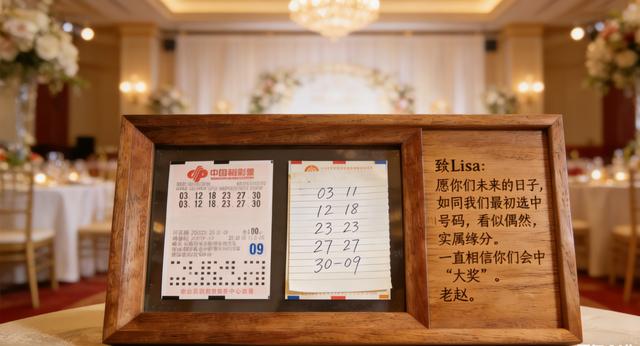 中国福利彩票
03 12 18 23 27 30
03 12 18 23 27 30
100
09
03 11
12 18
23 23
27 27
30-09
致Lisa:
愿你们未来的日子,
如同我们最初选中
号码，看似偶然，
实属缘分。
一直相信你们会中
“大奖”。
老赵。